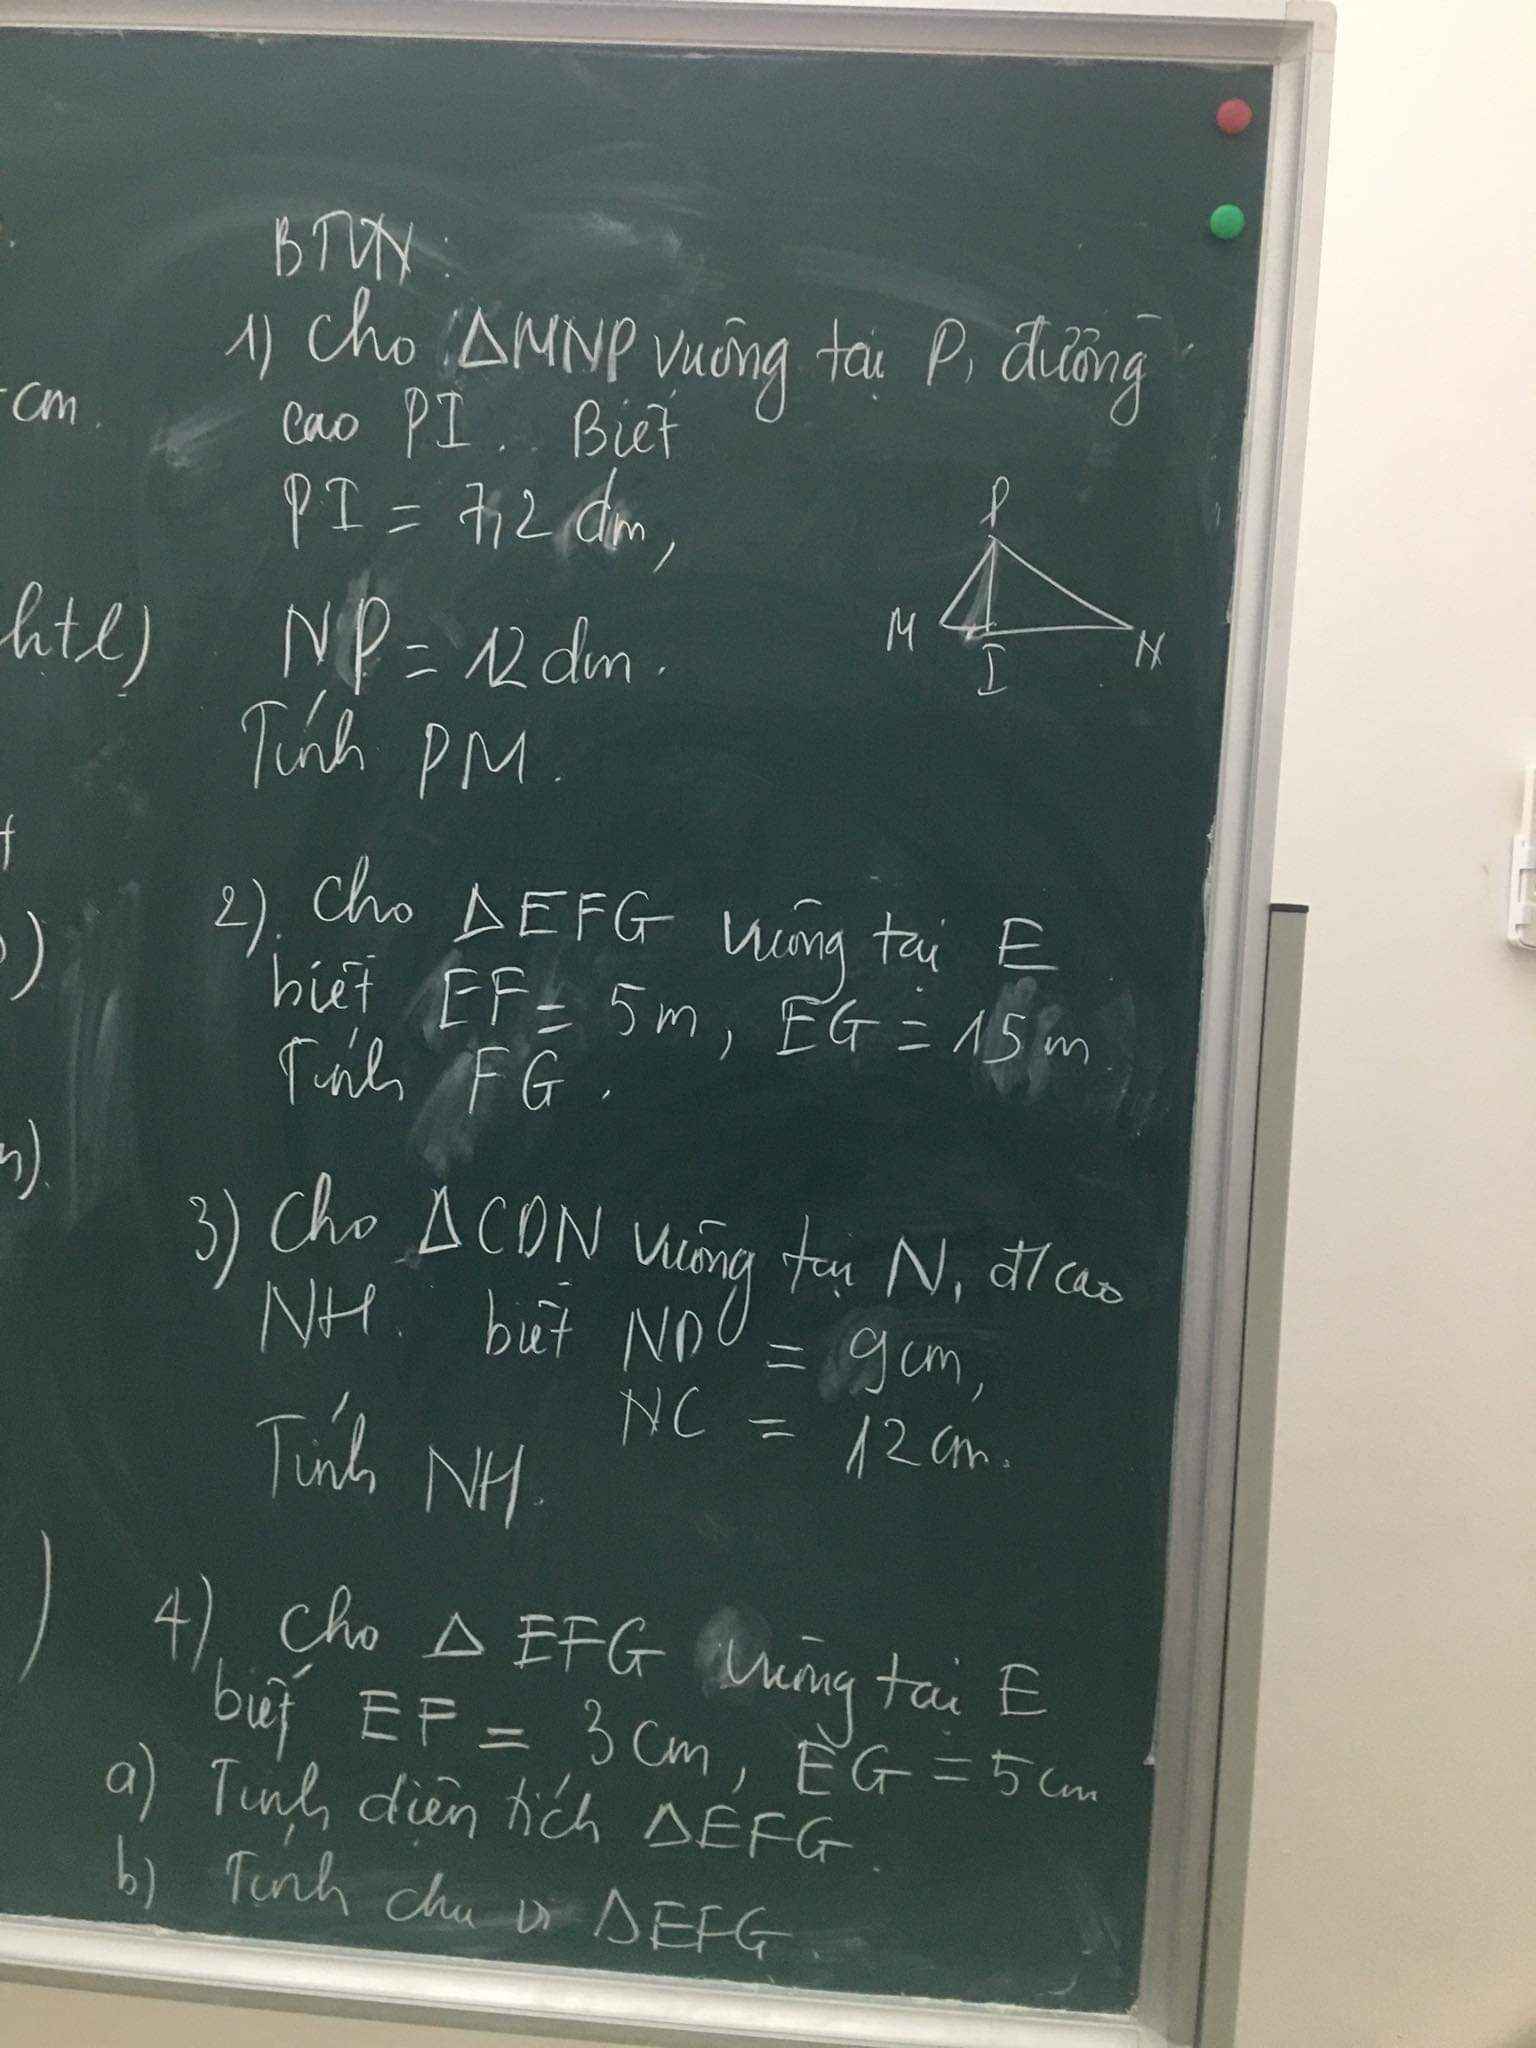 BTVN:
1) Cho ΔMNP vuông tại P, đường
cao PI. Biết
PI = 7,2 dm,
NP = 12 dm.
Tính PM.
P
M
I
N
2) Cho ΔEFG vuông tại E
biết EF = 5 m, EG = 15 m
Tính FG.
3) Cho ΔCDN vuông tại N, đ/cao
NH. biết ND = 9 cm,
NC = 12 cm.
Tính NH.
4) Cho Δ EFG vuông tại E
biết EF = 3 cm, EG = 5 cm
a) Tính diện tích ΔEFG.
b) Tính chu vi ΔEFG
cm.
htl)